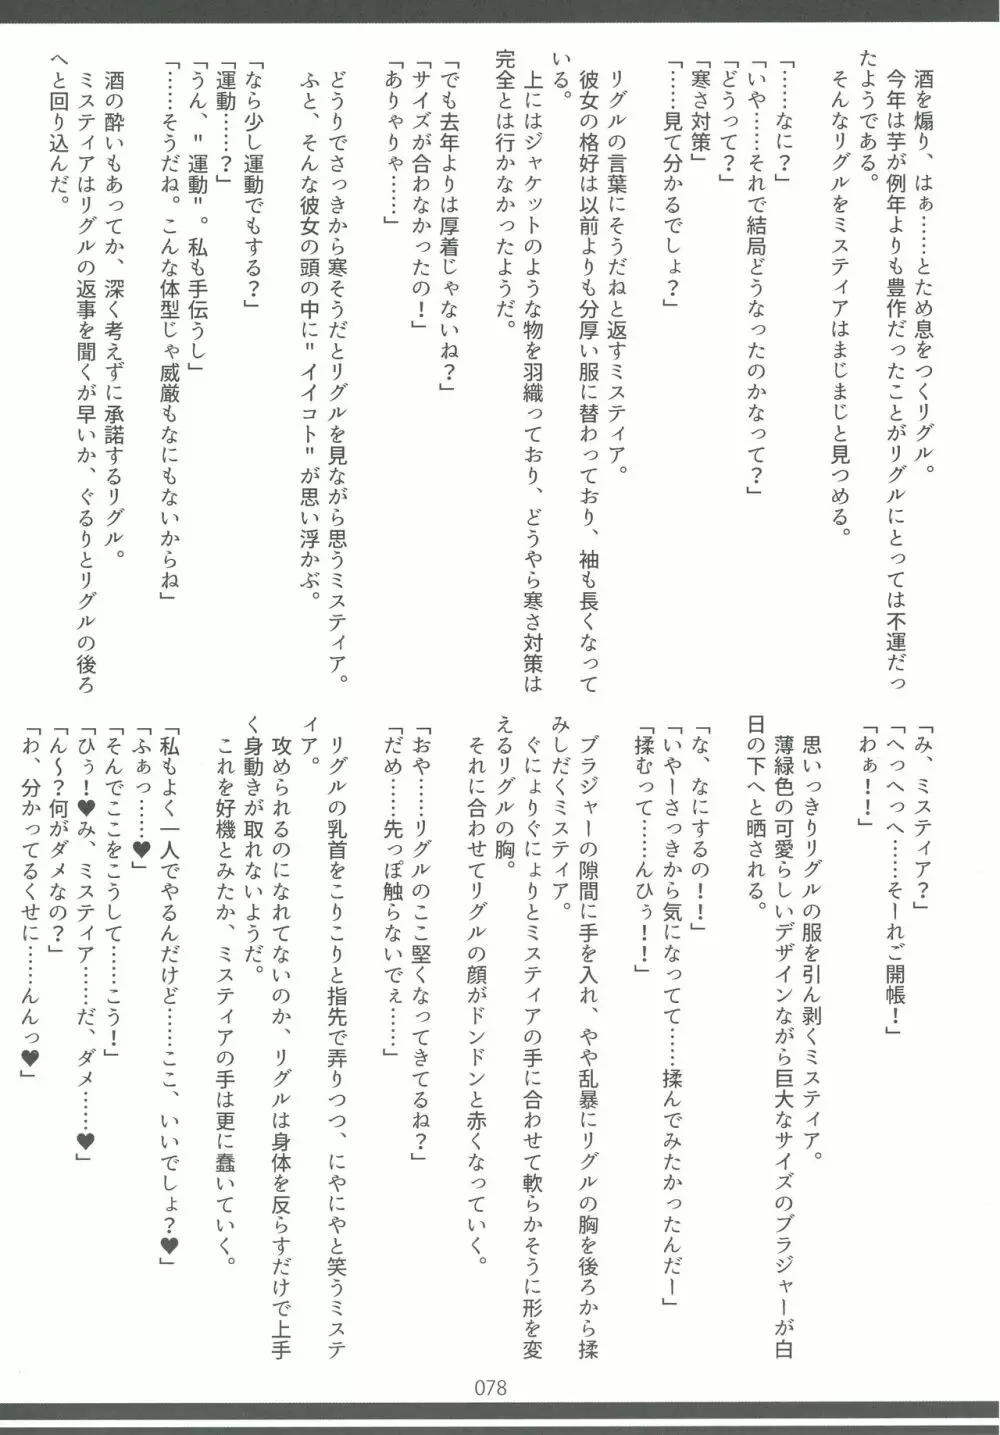 酒を煽り、はぁ……とため息をつくリグル。
今年は芋が例年よりも豊作だったことがリグルにとっては不運だっ
たようである。
そんなリグルをミスティアはまじまじと見つめる。
「……なに？」
「いや……それで結局どうなったのかなって？」
「どうって？」
「寒さ対策」
「……見て分かるでしょ？」
リグルの言葉にそうだねと返すミスティア。
彼女の格好は以前よりも分厚い服に替わっており、袖も長くなって
いる。
上にはジャケットのような物を羽織っており、どうやら寒さ対策は
完全とは行かなかったようだ。
「でも去年よりは厚着じゃないね？」
「サイズが合わなかったの！」
「ありゃりゃ……」
どうりでさっきから寒そうだとリグルを見ながら思うミスティア。
ふと、そんな彼女の頭の中に"イイコト"が思い浮かぶ。
「なら少し運動でもする？」
「運動……？」
「うん、"運動"。私も手伝うし」
「……そうだね。こんな体型じゃ威厳もなにもないからね」
酒の酔いもあってか、深く考えずに承諾するリグル。
ミスティアはリグルの返事を聞くが早いか、ぐるりとリグルの後ろ
へと回り込んだ。
「み、ミスティア？」
「へっへっへ……そーれご開帳！」
「わぁ！！」
思いっきりリグルの服を引ん剥くミスティア。
薄緑色の可愛らしいデザインながら巨大なサイズのブラジャーが白
日の下へと晒される。
「な、なにするの！！」
「いやーさっきから気になってて……揉んでみたかったんだー」
「揉むって……んひぅ！！」
ブラジャーの隙間に手を入れ、やや乱暴にリグルの胸を後ろから揉
みしだくミスティア。
ぐにょりぐにょりとミスティアの手に合わせて軟らかそうに形を変
えるリグルの胸。
それに合わせてリグルの顔がドンドンと赤くなっていく。
「おや……リグルのここ堅くなってきてるね？」
「だめ……先っぽ触らないでぇ……」
リグルの乳首をこりこりと指先で弄りつつ、にやにやと笑うミステ
ィア。
攻められるのになれてないのか、リグルは身体を反らすだけで上手
く身動きが取れないようだ。
これを好機とみたか、ミスティアの手は更に蠢いていく。
「私もよく一人でやるんだけど……ここ、いいでしょ？♥」
「ふぁっ……♥」
「そんでここをこうして……こう！」
「ひぅ！♥み、ミスティア……だ、ダメ……♥」
「ん～？何がダメなの？」
「わ、分かってるくせに……んんっ♥」
078